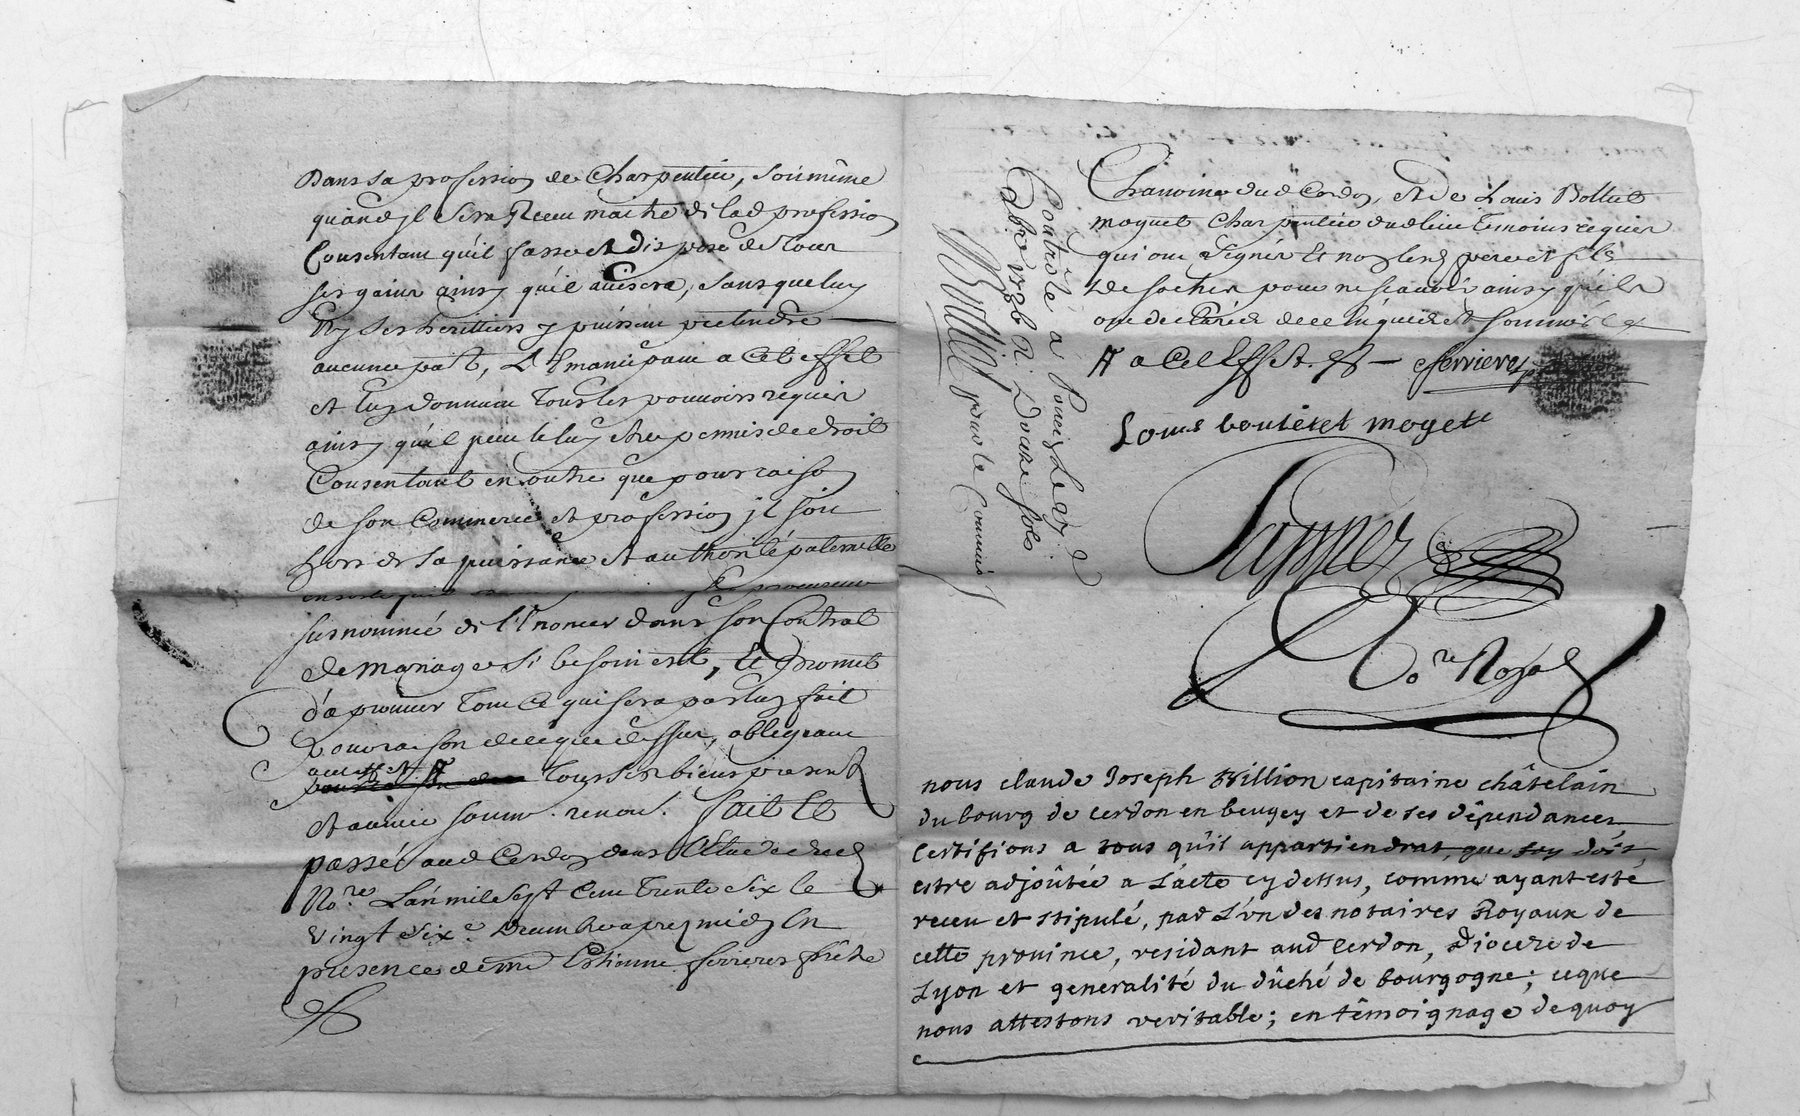 Dans sa profession de Charpentier, soit même
quand jl sera Receu maitre de lad profession
Consentant qu'il fasse et dispose de Tous
ses gains ainsy qu'il avisera, sans que luy
Ny ses heritiers y puissent pretendre
aucune part, L'Emancipant a Cet effet
et luy donnant Tous les pouvoirs requis
ainsy qu'il peut le luy être permis de droit
Consentant en outre que pour raison
de son Commerce et profession jl soit
hors de sa puissance et authorité paternelle
procureur
susnommé de l'Enoncer dans son Contrat
de mariage si besoin est, Et promet
d'aprouver Tout Ce qui sera par luy fait
a raison de ce que dessus, obligeant
Tous ses biens presents
et avenir soum. renon. fait Et
passé aud Cerdon dans l'Etude dud
No.re L'an mil sept Cent Trente Six le
vingt six.e decembre apres midy En
presence de me Estienne ferrieres prêtre
Chanoine dud Cerdon, et de Louis Bottet
moquet Charpentier dud lieu Temoins requis
qui ont signés Et non lesd pere et fils
de ce enquis et sommés
# a Cet Effet. — ferrieres
Louis bouteset moyett
No.re Royal
Contrôlé à Poncin Le
xbre 1736 R. Douze sols
Brillat pour le Commis
nous claude Joseph Billion capitaine châtelain
du bourg de cerdon en beugey et de ses dêpendances
Certifions a tous qu'il appartiendrat, que foy doit
estre adjoûtée a L'acte cy dessus, comme ayant esté
receu et stipulé, par L'un des notaires Royaux de
cette province, residant aud Cerdon, Diocese de
Lyon et generalité du dûché de bourgogne; ce que
nous attestons veritable; en têmoignage de quoy